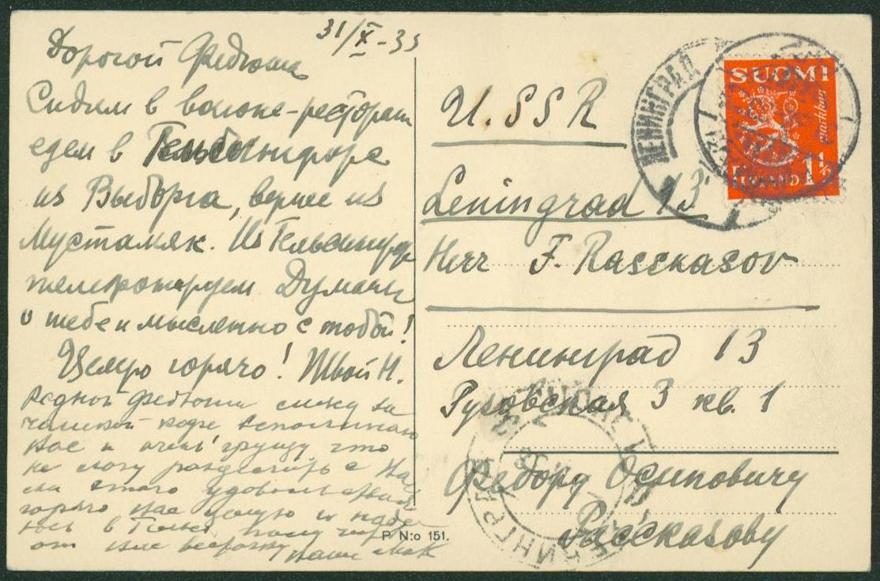 31/X-35
Дорогой Федюша
Сидим в вагоне-ресторан
едем в Гельсингфорс
из Выборга, вернее из
Мустамяк. Из Гельсингф
телеграфируем Думаем
о тебе и мысленно с тобой!
Целую горячо! Твой Н.
Родной Федюша сижу за
чашкой кофе вспоминаю
Вас и очень грущу что
не могу разделить с Ва
ми этого удовольствия
горячо Вас целую и наде
юсь в
от
U.SSR
Leningrad 13
Herr F. Rasckasov
Ленинград 13
Рузовская 3 кв. 1
Федору Осиповичу
Рассказову
P N:o 151.
ЛЕНИНГРАД
SUOMI
markkaa
FINLAND 1¼
ЛЕНИНГРАД